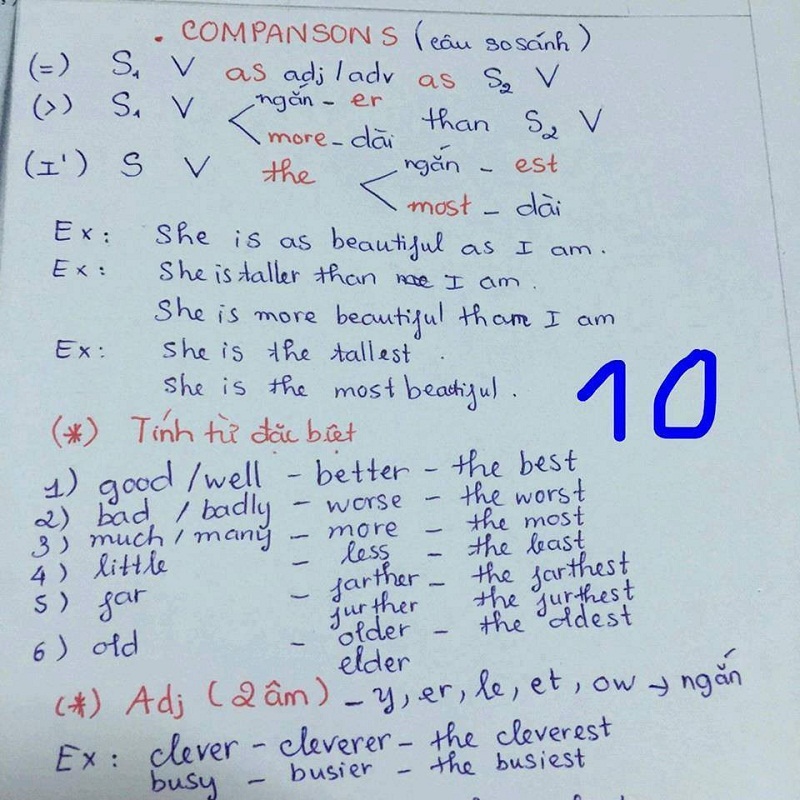 . COMPANSONS (câu so sánh)
(=) S₁ V as adj/adv as S₂ V
(>) S₁ V < ngắn - er
more - dài than S₂ V
(I') S V the < ngắn - est
most - dài
Ex: She is as beautiful as I am.
Ex: She is taller than me I am.
She is more beautiful tham I am
Ex: She is the tallest.
She is the most beatiful.
10
(*) Tính từ đặc biệt
1) good / well - better - the best
2) bad / badly - worse - the worst
3) much / many - more - the most
4) little - less - the least
5) far - farther - the farthest
further the furthest
6) old - older - the oldest
elder
(*) Adj (2 âm) - y, er, le, et, ow → ngắn
Ex: clever - cleverer - the cleverest
busy - busier - the busiest